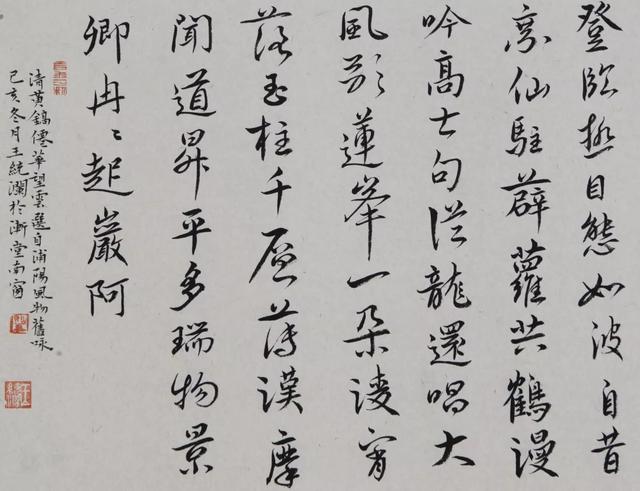 登臨極目態如波自昔
仙駐薜蘿共鶴漫
吟高士句從龍還唱大
風歌蓮峯一朵凌霄
落玉柱千薄漢摩
聞道昇平多瑞物景
卿冉〻起巖阿
清黃鎬僊華望雲選自浦陽風物舊咏
己亥冬月王統瀾於漸堂南窗